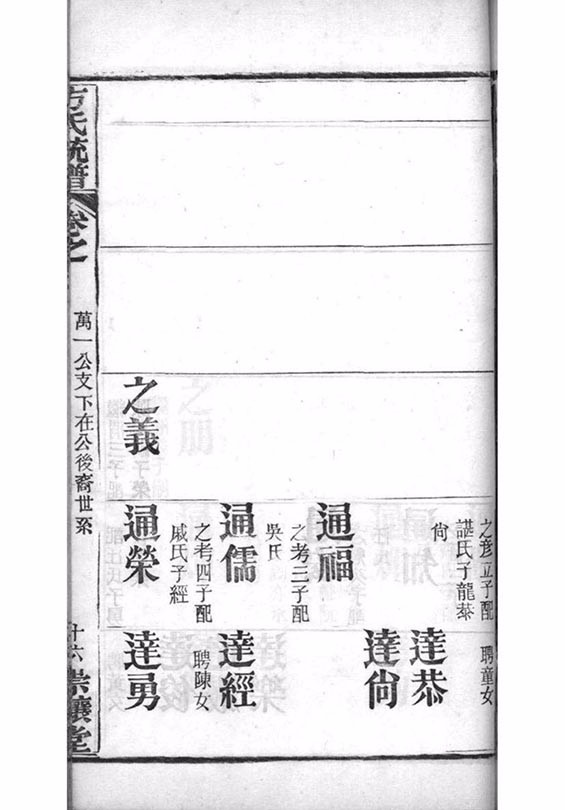 之彥立子配
諶氏子龍恭
尙
通福
之考三子配
吳氏
通儒
之考四子配
戚氏子經
通榮
之義
聘童女
達恭
達尙
達經
聘陳女
達勇
方氏統譜
卷之
萬一公支下在公後裔世系
十六
崇讓堂